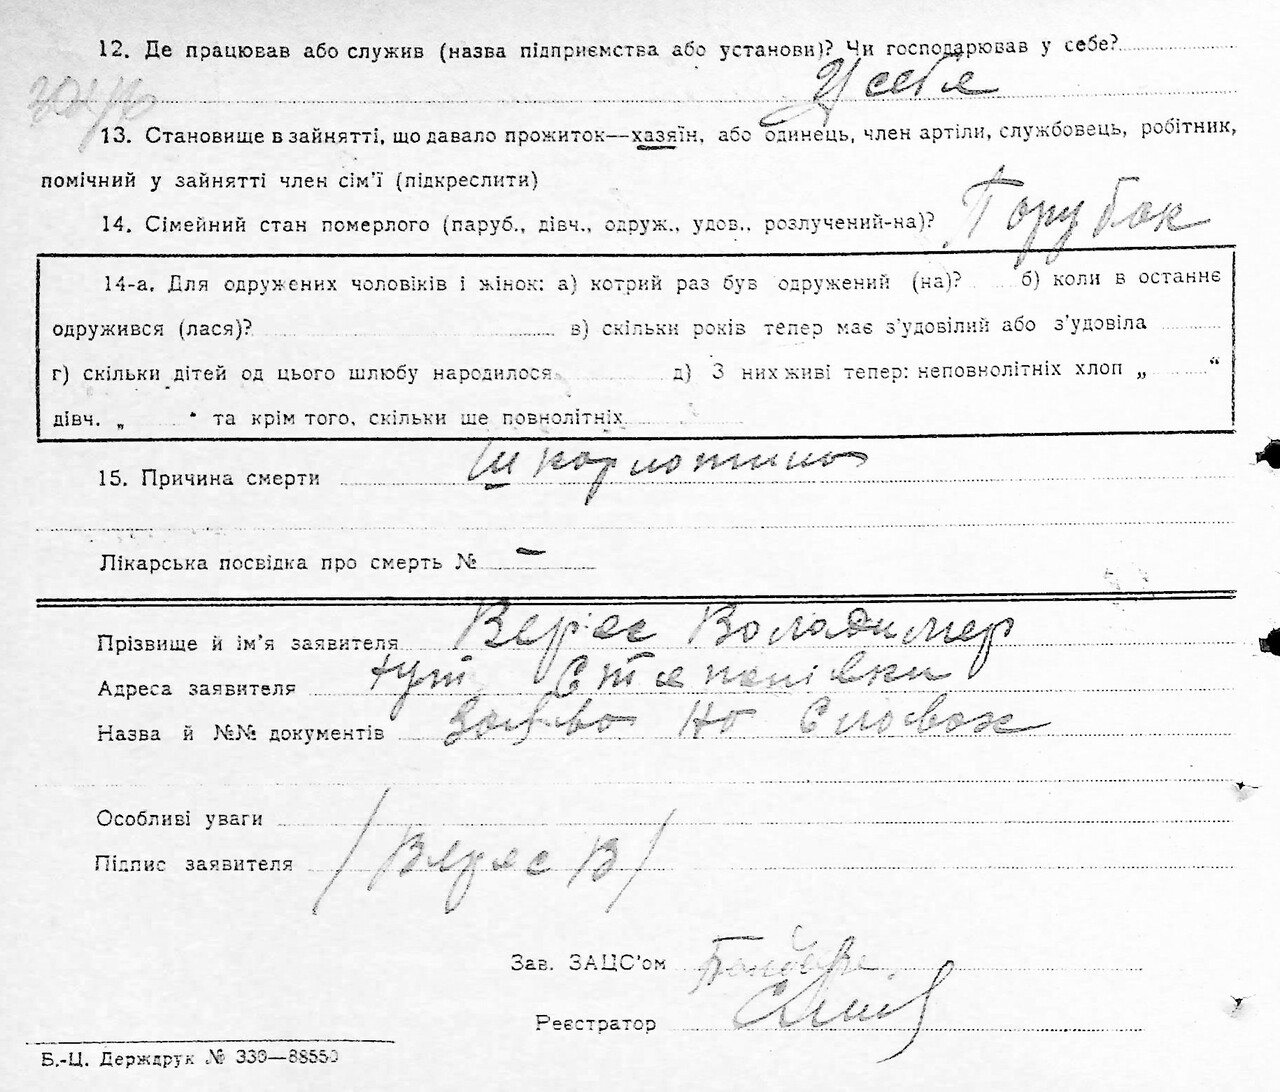 12. Де працював або служив (назва підприємства або установи)? Чи господарював у себе?
У себе
13. Становище в зайнятті, що давало прожиток—хазяїн, або одинець, член артіли, службовець, робітник,
помічний у зайнятті член сім'ї (підкреслити)
14. Сімейний стан померлого (паруб., дівч., одруж., удов., розлучений-на)? Порубок
14-а. Для одружених чоловіків і жінок: а) котрий раз був одружений (на)? б) коли в останнє
одружився (лася)? в) скільки років тепер має з'удовілий або з'удовіла
г) скільки дітей од цього шлюбу народилося д) З них живі тепер: неповнолітніх хлоп „ “
дівч. „ “ та крім того, скільки ще повнолітніх
15. Причина смерти Шкарлотина
Лікарська посвідка про смерть № —
Прізвище й ім'я заявителя Верес Володимер
Адреса заявителя тут Степанівки
Назва й №№ документів Заява на Словах
Особливі уваги
Підпис заявителя /Верес В/
Зав. ЗАЦС'ом
Реєстратор
Б.-Ц. Держдрук № 339—88550